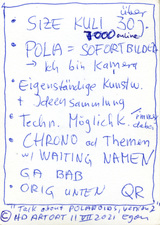 über
• SIZE KULI 30J.
7000 online
• POLA = SOFORTBILDER
→ Ich bin Kamera
• Eigenständige Kunstw.
+ Ideen Sammlung
• Techn. Möglichk.
dabei
• CHRONO ad Themen
w/ WAITING NAMEN
• GA BAB
• ORIG UNTEN QR
"Talk about POLAROIDS,
© HD ARTORT 11 VII 2021 Egon